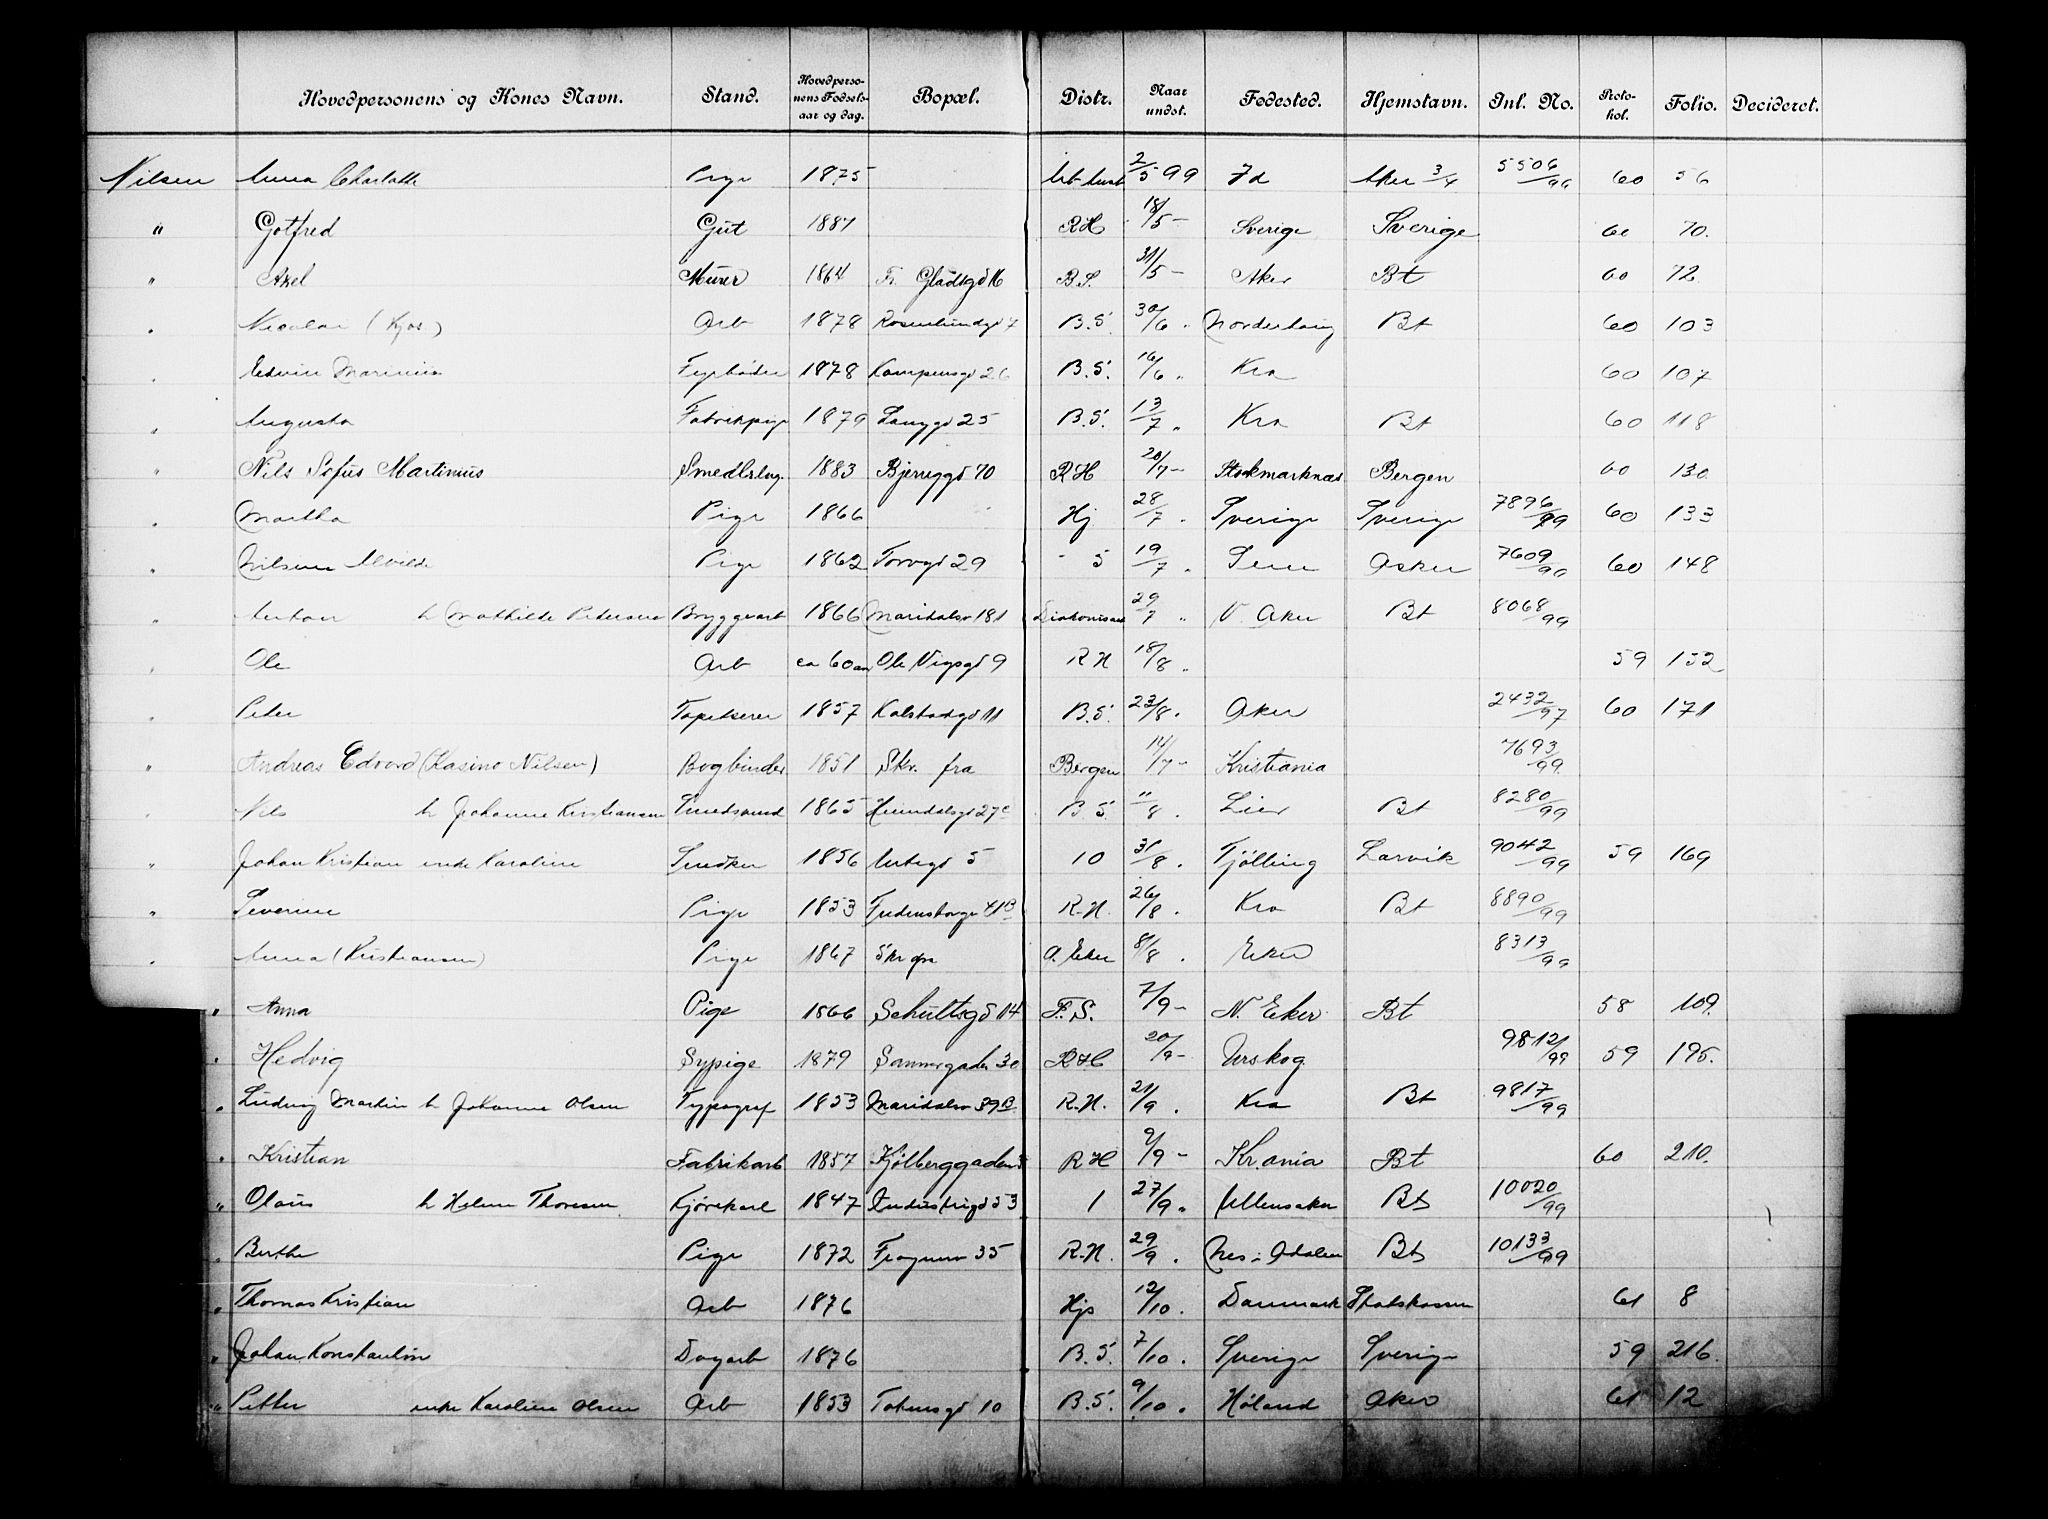 Hovedpersonens og Kones Navn. Stand. Hovedpersonens Fødselsaar og dag. Bopæl. Distr. Naar undst. Fødested. Hjemstavn. Inl. No. Protokol. Folio. Decideret.
Nilsen Anna Charlotte Pige 1875 2/5 99 Id Aker 3/4 5506/96 60 56
" Gotfred Gut 1887 RH 18/5 - Sverige Sverige 60 70.
" Axel Murer 1864 Fr. Gladtsgd 16 B.S. 31/5 - Aker Bt 60 72
" Nicolai (Kjos) Arb 1878 Rosenlundgd 7 B.S. 30/6 " Norderhaug Bt 60 103
" Edvin Marinius Fyrbøder 1878 Kampensgd 26 B.S. 16/6 " Kra 60 107
" Augusta Fabrikpige 1879 Langgd 25 B.S. 13/7 " Kra Bt 60 118
" Nils Sofus Martinius Smedlærling 1883 Bjerreggd 70 RH 20/7 - Stokmarknæs Bergen 60 130
" Martha Pige 1866 Hj 28/7 " Sverige Sverige 7896/99 60 133
" Nilsine Alvilde Pige 1862 Torvgd 29 5 19/7 " Sem Asker 7609/90 60 148
" Anton h Mathilde Petersen Bryggearb 1866 Maridalsv 181 29/7 " V. Aker Bt 8068/99
" Ole Arb ca 60 aar Ole Vigsgd 9 RH 18/8 " 59 132
" Peter Tapetserer 1857 Kalstadgd 11 B.S. 23/8 " Aker 2432/97 60 171
" Andreas Edvard (Kasino Nilsen) Bogbinder 1851 Skr. fra Bergen 14/7 - Kristiania 7693/99
" Nils h Johanne Kristiansen Smedsvend 1865 Heimdalsgd 27c B S. "/8 " Lier Bt 8280/99
" Johan Kristian enke Karoline Snedker 1856 Urtegd 5 10 31/8 " Tjølling Larvik 9042/99 59 169
" Severine Pige 1853 Fredensborgv 41B R.H. 26/8 " Kra Bt 8890/99
" Anna (Kristiansen) Pige 1867 Skr fra Ø. Eker 8/8 " Eker 8313/99
" Anna Pige 1866 Schultsgd 14 F.S. 7/9 - N. Eker Bt 58 109.
" Hedvig Sypige 1879 Sannergaden 30 RH 20/9 - Urskog 9812/99 59 195.
" Ludvig Martin h Johanne Olsen Typograf 1853 Maridalsv 89B R.H. 21/9 " Kra Bt 9817/99
" Kristian Fabrikarb 1857 Kjølberggaden 5 RH 9/9 - Kr.ania Bt 60 210.
" Olaus h Helene Thoresen Kjørekarl 1847 Industrigd 53 1 27/9 " Ullensaker Bt 10020/99
" Berthe Pige 1872 Frognerv 35 R.H. 29/9 " Nes i Odalen Bt 10133/99
" Thomas Kristian Arb 1876 Hjs 12/10 " Danmark Statskassen 61 8
" Johan Konstantin Dagarb 1876 B.S. 7/10 " Sverige Sverige 59 216
" Petter enke Karoline Olsen Arb 1853 Tøiensgd 10 B.S. 9/10 " Høland Aker 61 12